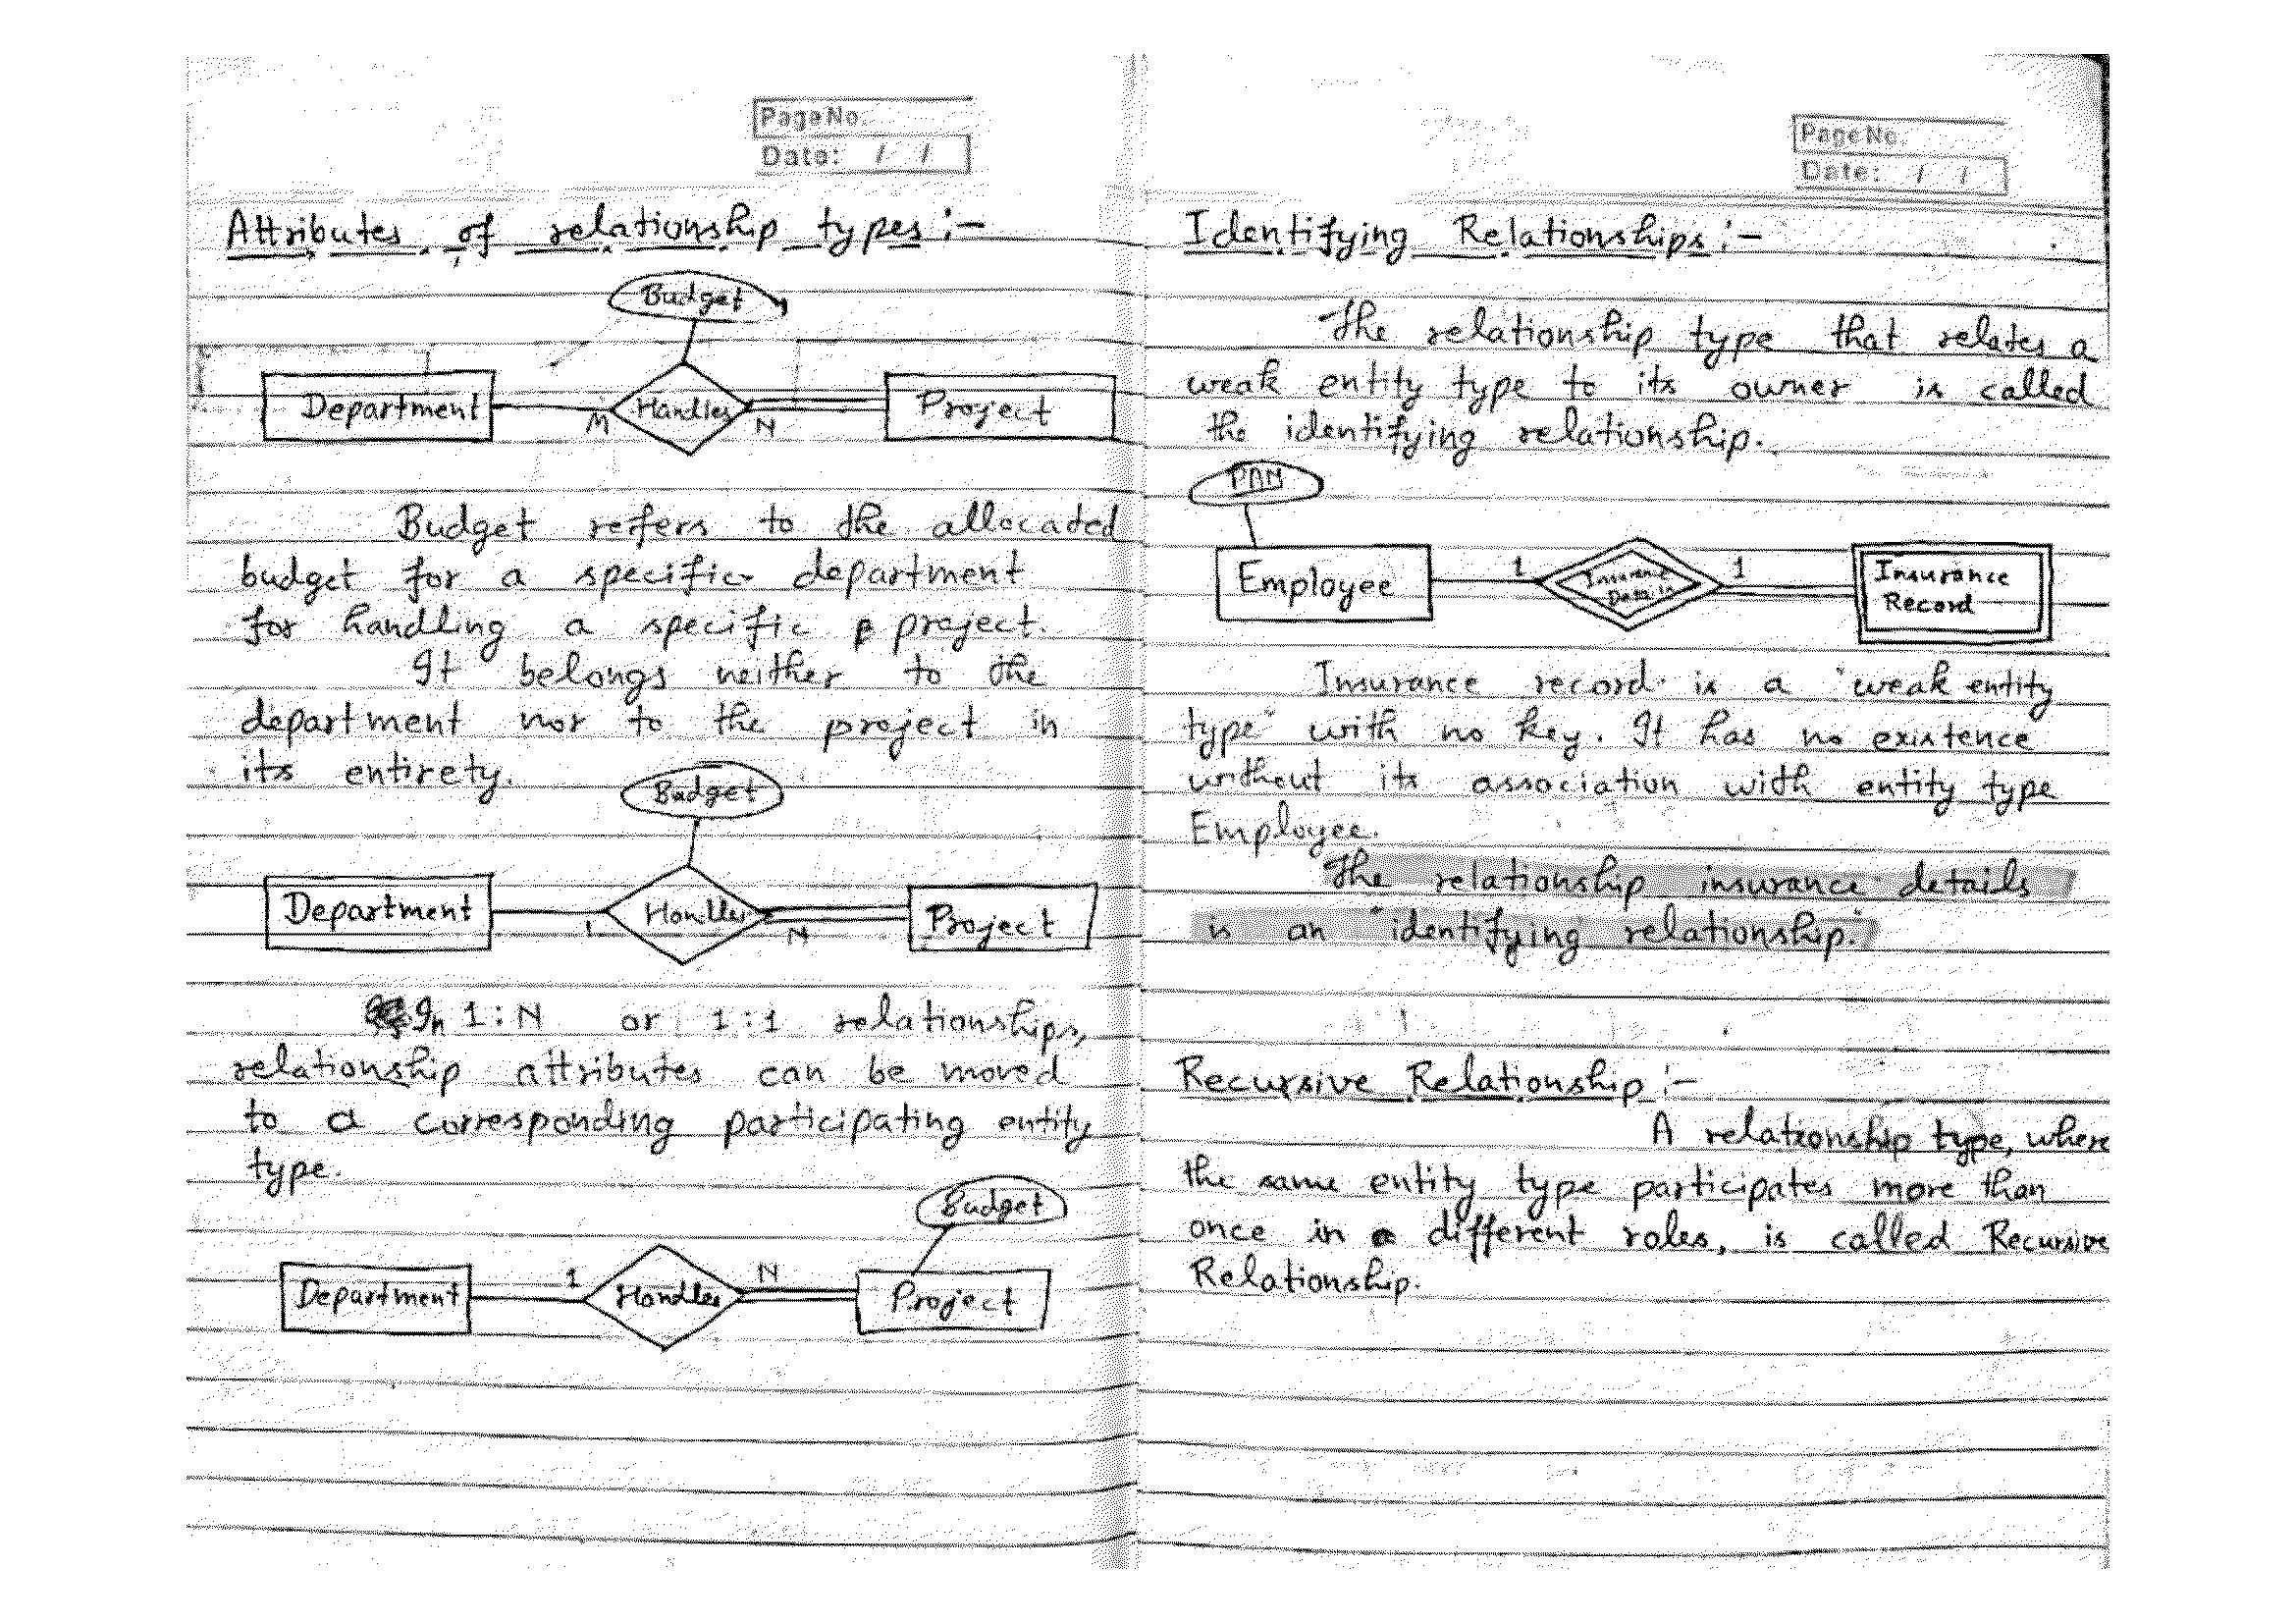 PageNo.
Date: / /
Attributes of relationship types :-
Budget
Department M Handles N Project
Budget refers to the allocaded
budget for a specific department
for handling a specific project.
It belongs neither to the
department nor to the project in
its entirety.
Budget
Department 1 Handles N Project
In 1:N or 1:1 relationships,
relationship attributes can be moved
to a corresponding participating entity
type.
Budget
Department 1 Handles N Project
PageNo.
Date: / /
Identifying Relationships :-
The relationship type that relates a
weak entity type to its owner is called
the identifying relationship.
PAN
Employee 1 1 Insurance
Record
Insurance record is a "weak entity
type" with no key. It has no existence
without its association with entity type
Employee.
The relationship insurance details
is an "identifying relationship."
Recursive Relationship :-
A relationship type, where
the same entity type participates more than
once in different roles, is called Recursive
Relationship.